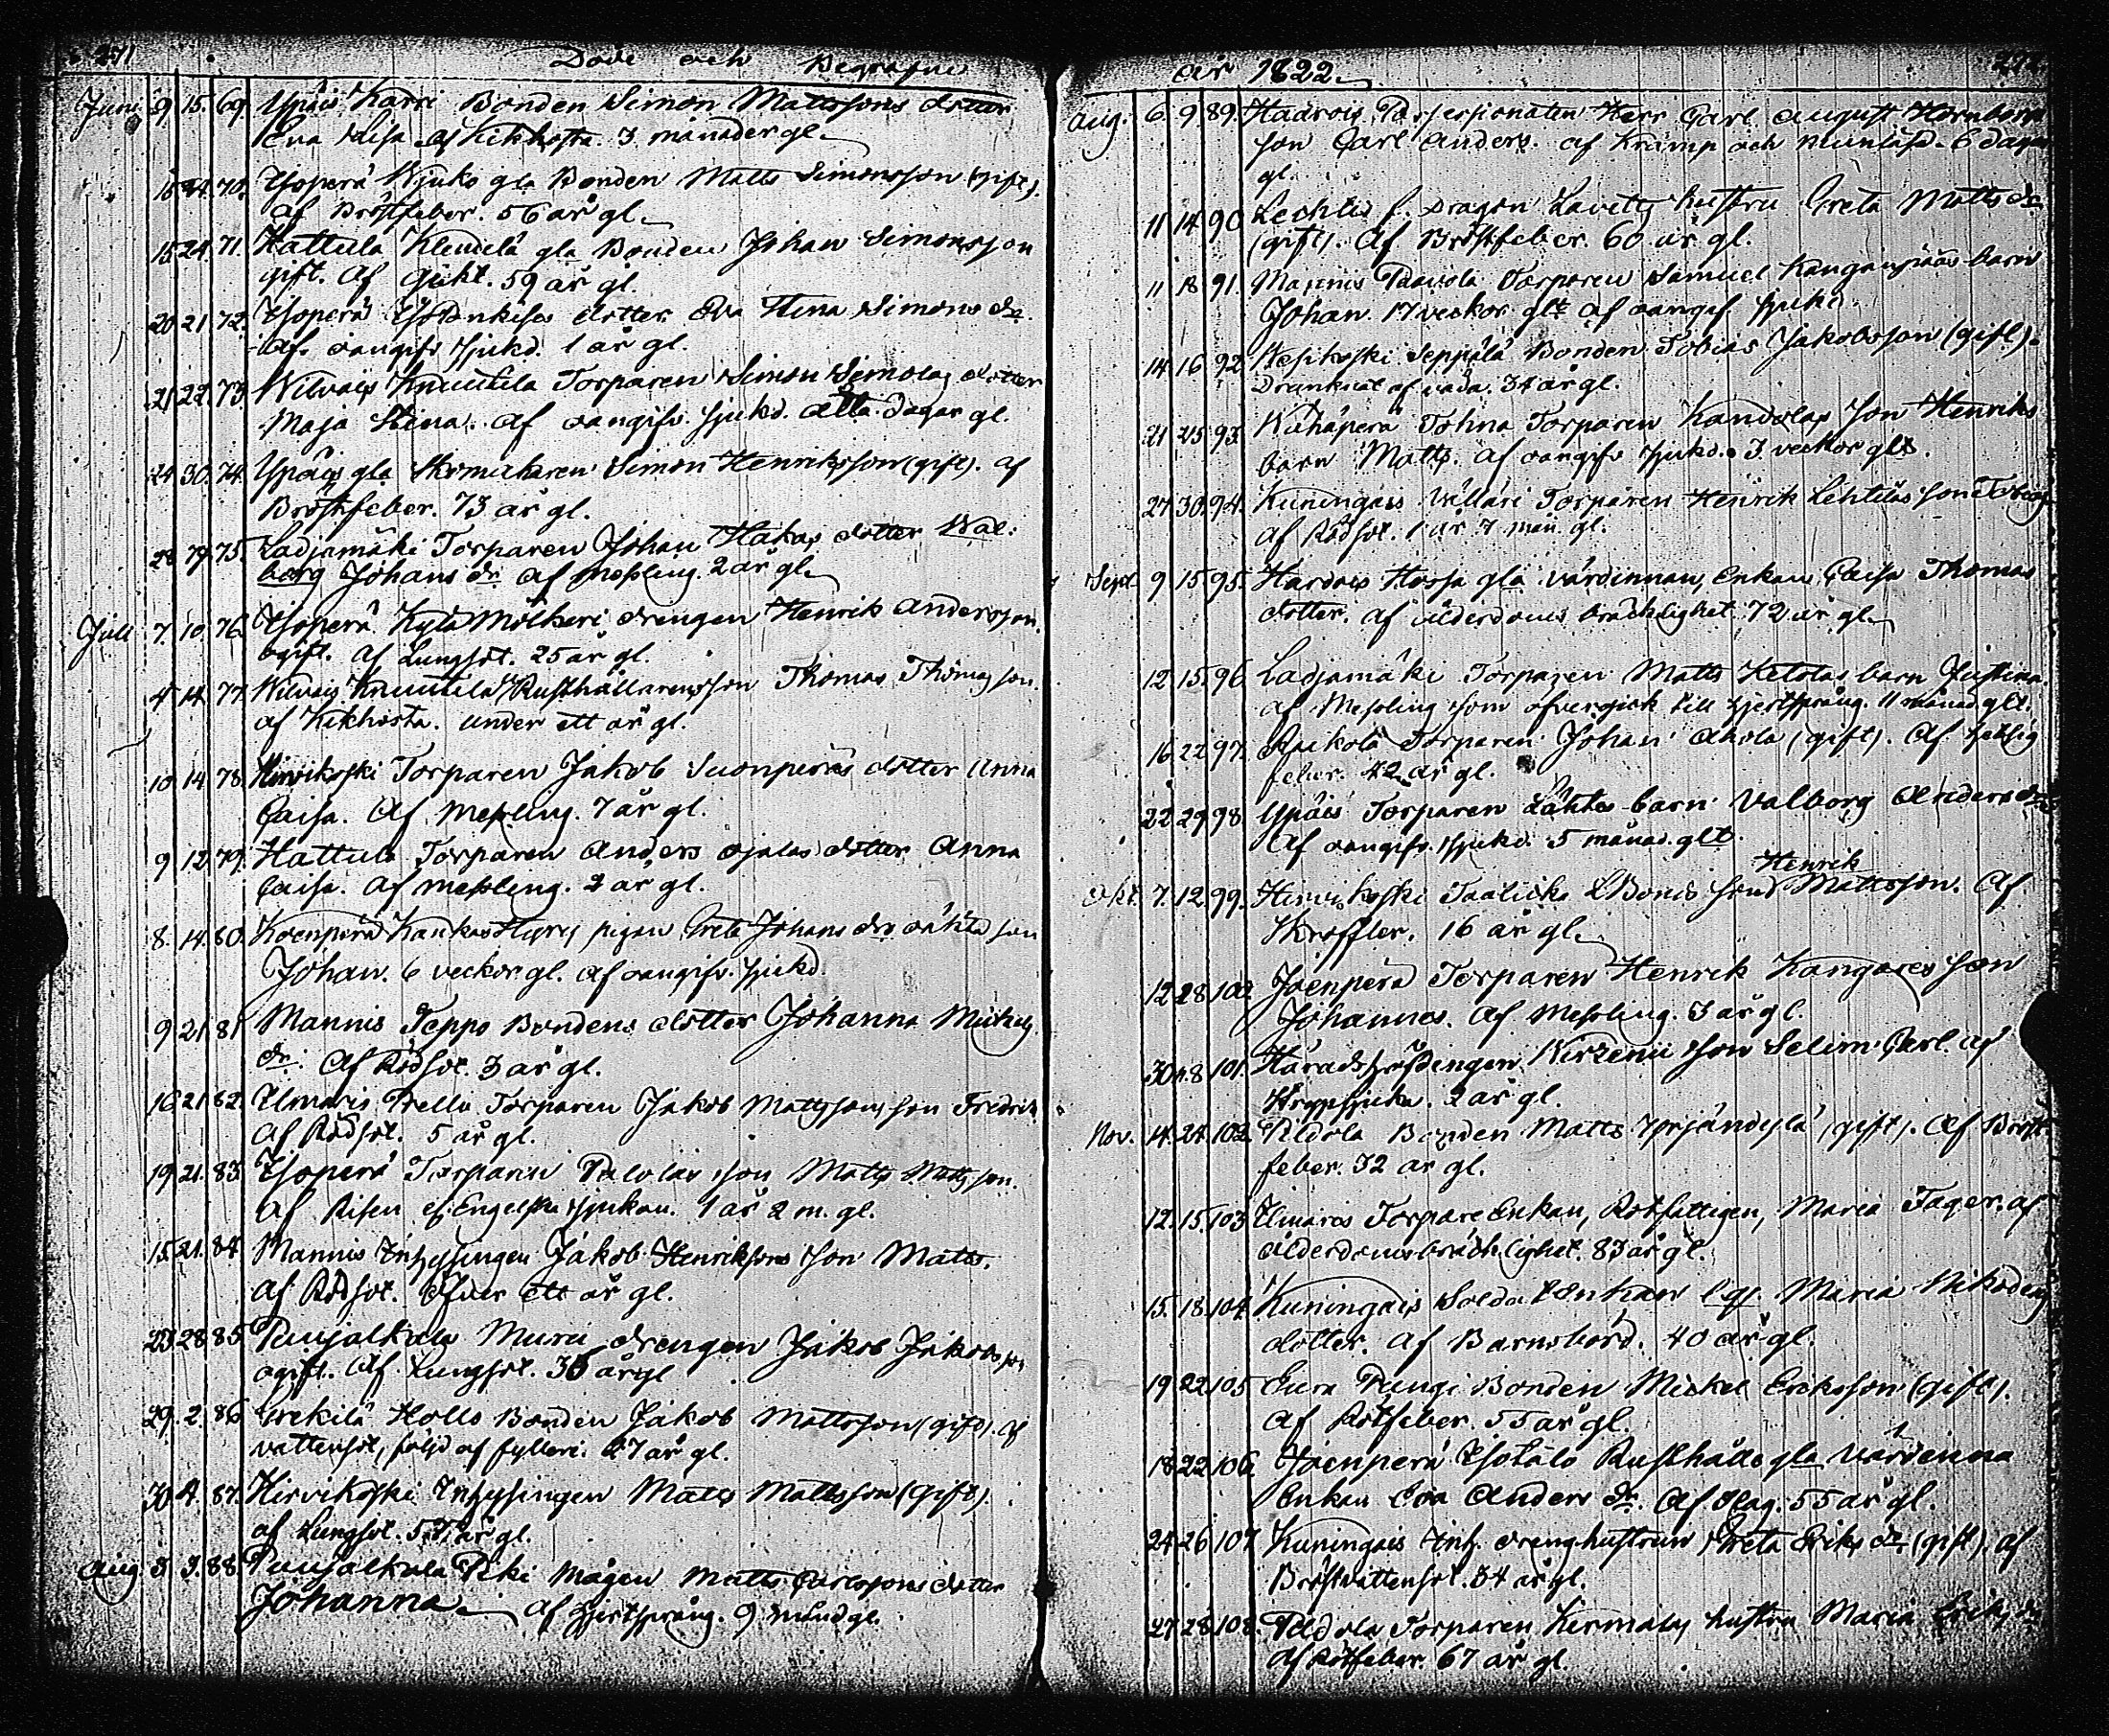 271
Döde och Begrafne
Juni 9 15. 69. Ypäis Karri Bonden Simon Mattssons dotter
Eva Lisa af Kikhosta. 3 månader gl.
15 24. 70. Isoperä Wjuko gla Bonden Matts Simonsson (gift).
af Bröstfeber. 56 år gl.
15 24. 71. Hattula Klemelä gla Bonden Johan Simonsson
gift. Af Gikt. 59 år gl.
20 21 72. Isoperä dotter Eva Stina Simons dr.
af oangifv sjukd. 1 år gl.
21 22. 73. Wilvais Knuutila Torparen Simon Simolas dotter
Maja Stina. af oangifv. sjukd. Åtta dagar gl.
24 30. 74. Ypäis gla Skomakaren Simon Henriksson (gift). af
Bröstfeber. 73 år gl.
28 75. Ladjamäki Torparen Johan Hakas dotter Wal-
borg Johans dr af Messling 2 år gl.
Juli 7. 10. 76. Isoperä Kylä Mölkeri drengen Henrik Andersson.
ogift. af Lungsot. 25 år gl.
4 14. 77. Wilvais Knuutila Rusthållarens son Thomas Thomasson.
af Kikhosta. under ett år gl.
10 14 78. Hirvikoski Torparen Jakob Suonperäs dotter Anna
Caisa. Af Messling. 7 år gl.
9 12 79. Hattula Torparen Anders Ojalas dotter Anna
Caisa. af messling. 2 år gl.
8. 14. 80. Koenperä Kankas pigan Greta Johans dr oäkta son
Johan. 6 veckor gl. af oangifv. sjukd.
9 21. 81 Mannis Seppo Bondens dotter Johanna Mickels
dr. Af Rödsot. 3 år gl.
16 21. 82. Ilmaris Prella Torparen Jakob Mattssons son Fredrik
af Rödsot. 5 år gl.
19. 21. 83. Isoperä Torparen Palolas son Matts Mattsson.
af Risen el. Engelska sjukan. 1 år 2 m. gl.
15. 21. 84. Mannis Inhysingen Jakob Henrikssons son Matts.
af Rödsot. Öfver ett år gl.
23. 28. 85. Puujalkala Muru drengen Jakob Jakobsson
ogift. Af Lungsot. 36 år gl
29. 2. 86 Hollo Bonden Jakob Mattsson (gift). af
vattensot, följd af fylleri. 27 år gl.
30 4. 87. Hirvikoski Inhysingen Matts Mattsson (gift).
af Lungsot. år gl.
Aug 3 88. Puujalkala Piki mågen Matts Carlssons dotter
Johanna. af Hjertsprång. 9 månd gl.
år 1822.
272
Aug. 6. 9. 89. Hadvois Possessionaten Herr Carl August Hornborgs
son Carl Anders. af Kramp och munlåsd. 6 dagar
gl.
11 14 90 Lechtis f. Dragon hustru Greta Matts dr.
(gift). af Bröstfeber. 60 år gl.
11 18 91. Mannis Paavola Torparen Samuel Kangas barn
Johan. 17 veckor glt af oangif. sjukd.
14 16 92. Kesikoski Seppälä Bonden Tobias Jakobsson (gift).
Drunknat af våda. 34 år gl.
21 25 93. Kuhäperä Tohna Torparen son Henriks
barn Matts. af oangifv sjukd. 3 veckor glt.
27 30 94. Kuningais Torparen Henrik Lehtiläs son Tobias
af Rödsot. 1 år 7 mån. gl.
Sept. 9 15 95. Hardois Horja gla värdinnan, Enkan Caisa Thomas
dotter. af ålderdoms bräcklighet. 72 år gl.
12. 15. 96 Ladjamäki Torparen Matts Ketolas barn Justina
af Messling som öfvergick till Hjertsprång. 11 månad glt.
16. 22 97. Raikola Torparen Johan Ahola (gift). af hetsig
feber. 42 år gl.
22. 29 98. Ypäis Torparen Lähtes barn Valborg Anders dr
Af oangifv. sjukd. 5 månad. glt.
Henrik
Okt. 7. 12. 99. Hirvikoski Taalicka LBonds son Mattsson. Af
Skroffler. 16 år gl.
12. 28 100. Joenperä Torparen Henrik Kangares son
Johannes. af Messling. 3 år gl.
30. 8 101. Häradshöfdingen Wirzenii son Selim Carl. af
Strypsjuka. 2 år gl.
Nov. 14. 24. 102. Peldola Bonden Matts Yrjändylä (gift). Af Bröst-
feber. 32 år gl.
12. 15. 103 Ilmaros Torpare Enkan, Rotfattigen, Maria Fager. af
ålderdomsbräcklighet 83 år gl.
15. 18. 104. Kuningais Soldat Enkan Maria Nikodemi
dotter. af Barnsbörd. 40 år gl.
19. 22 105. Eura Pungi Bonden Mickel Eriksson (gift).
af Rötfeber. 55 år gl.
18. 22. 106. Joenperä Isotalo Rusthålls gla värdinna
Enkan Eva Anders dr. Af Slag. 55 år gl.
24. 26 107 Kuningais Inh. drenghustrun Greta Eriks dr. (gift). af
Bröstvattensot. 34 år gl.
27. 28. 108. Peldola Torparen Kermalas hustru Maria Eriks dr
af Rötfeber. 67 år gl.